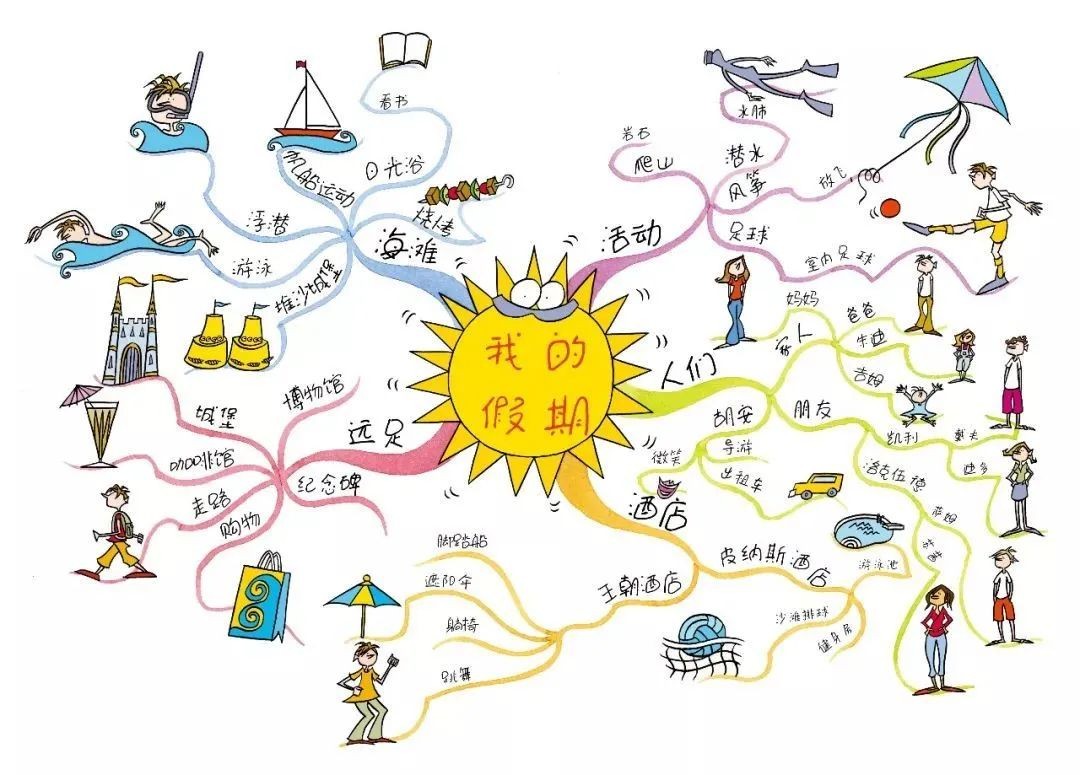 我的
假期
活动
爬山
岩石
潜水
水肺
风筝
放飞
足球
室内足球
人们
家人
妈妈
爸爸
朱迪
吉姆
朋友
凯利
戴夫
迪多
洛克伍德
萨姆
胡安
微笑
导游
出租车
酒店
皮纳斯酒店
游泳池
沙滩排球
健身房
王朝酒店
脚踏船
遮阳伞
躺椅
跳舞
远足
博物馆
城堡
咖啡馆
走路
购物
纪念碑
海滩
烧烤
日光浴
看书
帆船运动
浮潜
游泳
堆沙城堡